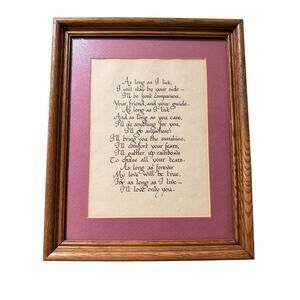 As long as I live,
I will stay by your side—
I'll be your companion,
Your friend, and your guide—
As long as I live
And as long as you care,
I'll do anything for you,
I'll go anywhere!
I'll bring you the sunshine,
I'll comfort your fears,
I'll gather up rainbows
To chase all your tears.
As long as forever
My love will be true,
For as long as I live—
I'll love only you.